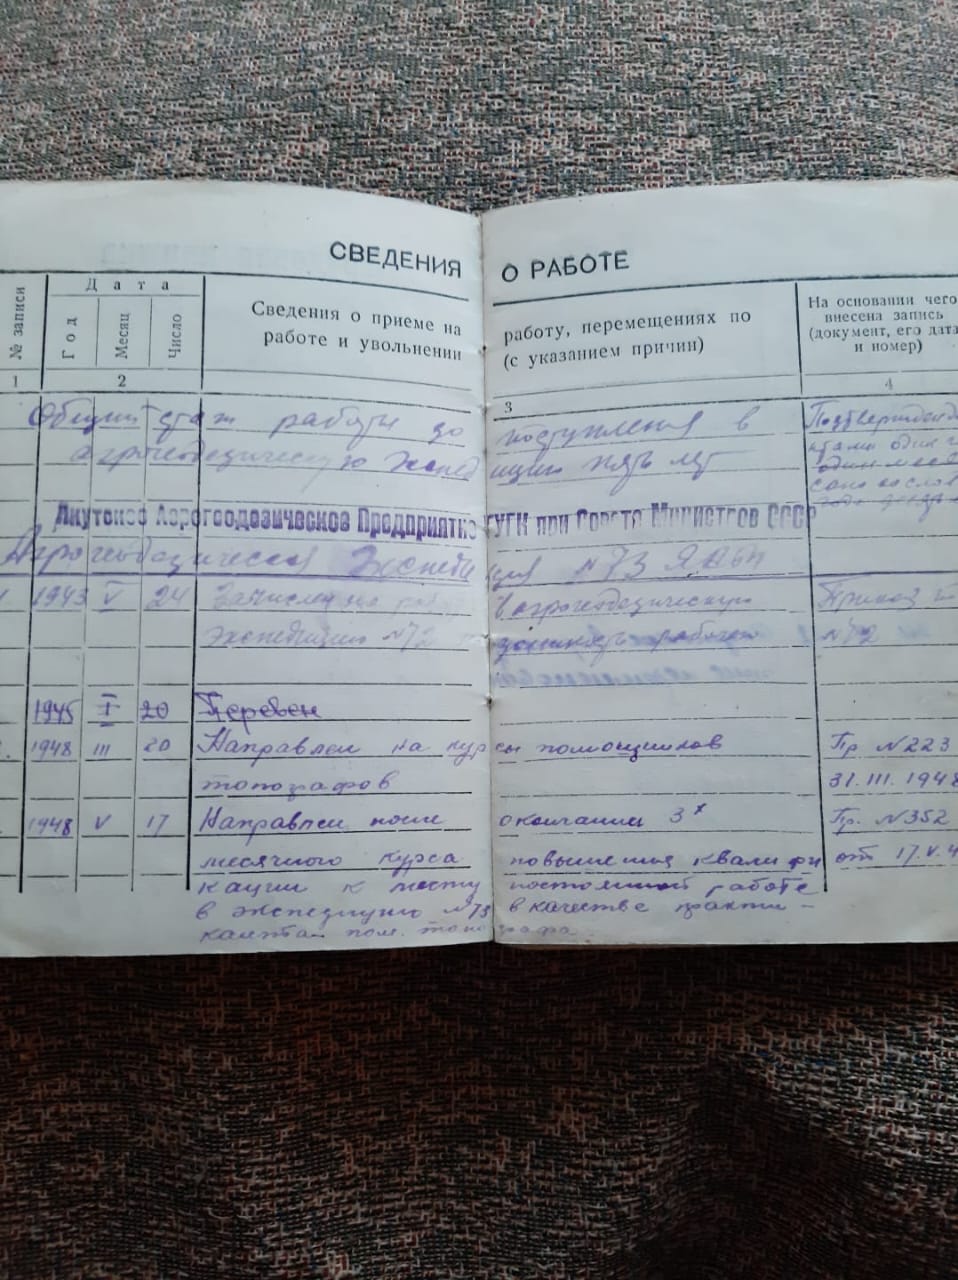 СВЕДЕНИЯ О РАБОТЕ
№ записи
Дата
Год
Месяц
Число
Сведения о приеме на работу, перемещениях по
работе и увольнении (с указанием причин)
На основании чего
внесена запись
(документ, его дата
и номер)
1 2 3 4
Общий стаж работы до поступления в
аэрогеодезическую экспедицию пять лет
Якутское Аэрогеодезическое Предприятие ГУГК при Совете Министров СССР
Аэрогеодезическая Экспедиция №73
1943 V 24 Зачислен на в аэрогеодезическую Приказ
экспедицию №72 должность рабочего №72
1945 I 20 Переведен
1948 III 20 Направлен на курсы помощников Пр №223
топографов 31.III.1948
1948 V 17 Направлен после окончании 3х Пр. №352
месячного курса повышения квалифи от 17.V.4
кации к месту постоянной работе
в экспедицию №73 в качестве практи-
канта пом. топографа